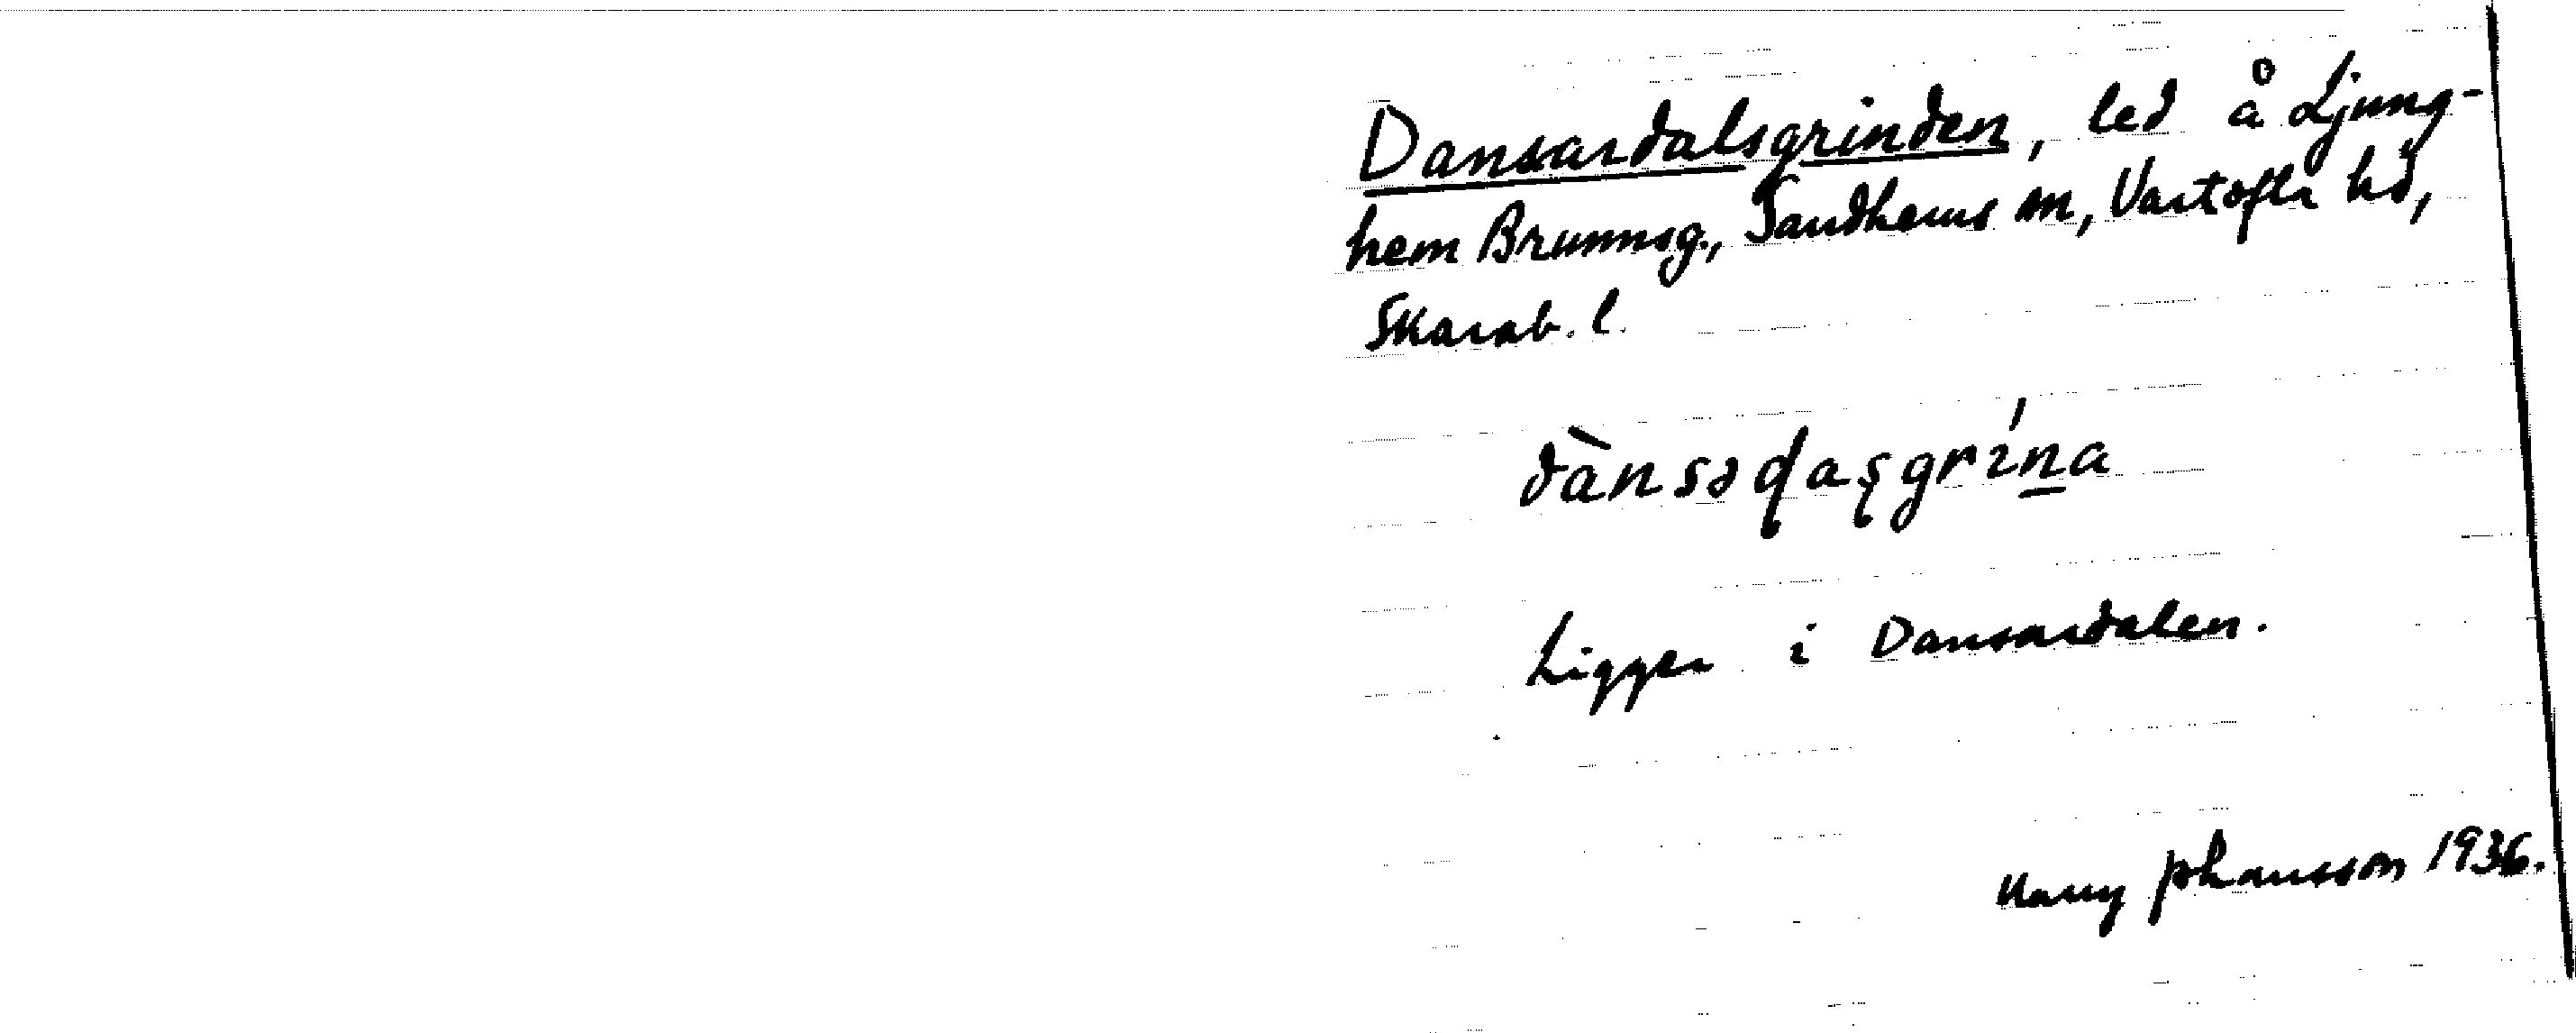 Dansardalsgrinden, led å Ljung-
hem Brunnsg., Sandhems sn, Vartofta hd,
Skarab. l.
dànsəɖaʂgrína
Ligger i Dansardalen.
Harry Johansson 1936.